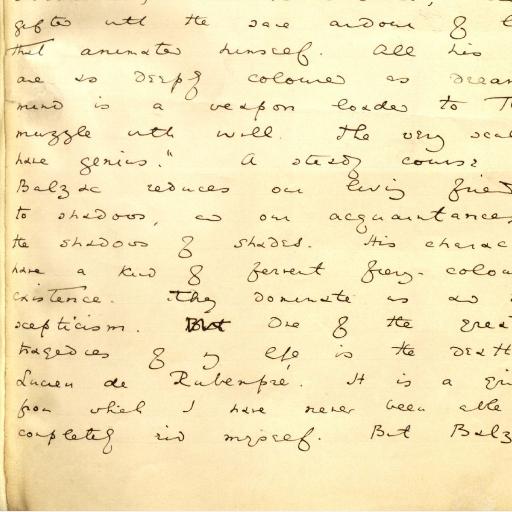 gifted with the same ardour of l
that animates himself. All his
are as deeply coloured as dream
mind is a weapon loaded to T
muzzle with will. The very scul
have genius." A steady course
Balzac reduces our living friend
to shadows, and our acquaintances
the shadows of shades. His charac
have a kind of fervent fiery-colou
existence. They dominate us and
scepticism. But One of the great
tragedies of my life is the death
Lucien de Rubempré. It is a gri
from which I have never been able
completely rid myself. But Balz